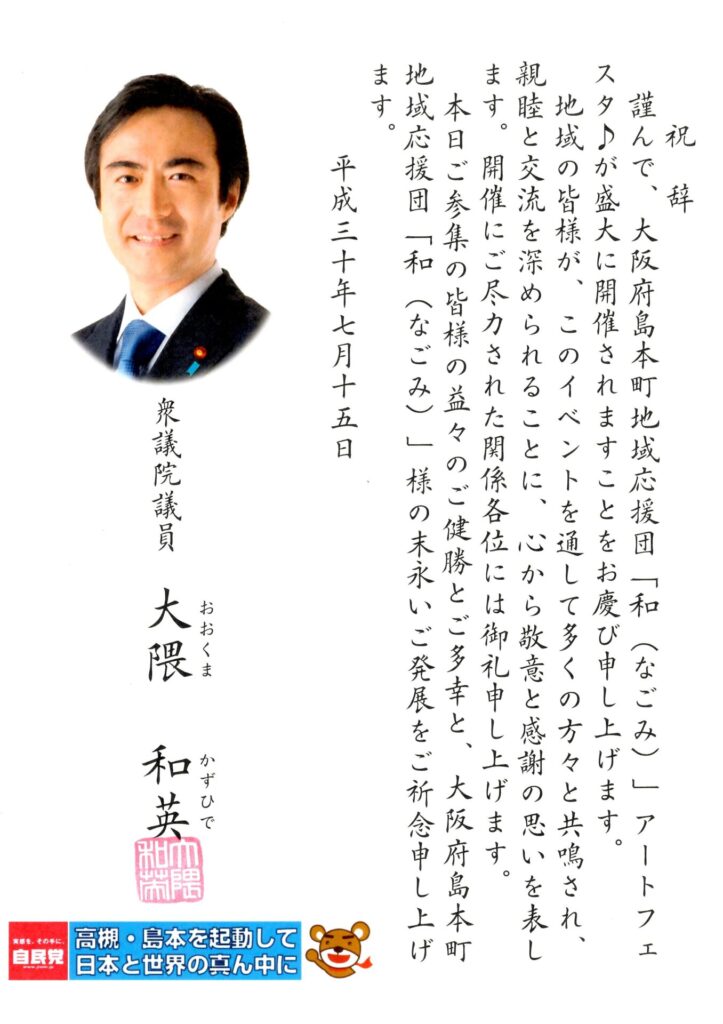 祝辞
謹んで、大阪府島本町地域応援団「和（なごみ）」アートフェ
スタ♪が盛大に開催されますことをお慶び申し上げます。
地域の皆様が、このイベントを通して多くの方々と共鳴され、
親睦と交流を深められることに、心から敬意と感謝の思いを表し
ます。開催にご尽力された関係各位には御礼申し上げます。
本日ご参集の皆様の益々のご健勝とご多幸と、大阪府島本町
地域応援団「和（なごみ）」様の末永いご発展をご祈念申し上げ
ます。
平成三十年七月十五日
衆議院議員
大隈 和英
おおくま かずひで
大隈
和英
実感を、その手に。
自民党
www.jimin.jp
高槻・島本を起動して
日本と世界の真ん中に